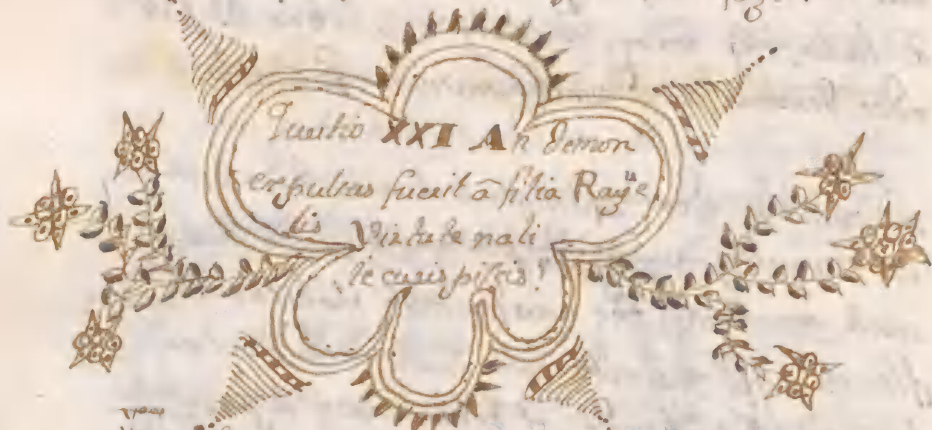 Quœstio XXI An demon
expulsus fuerit â filia Rague
lis Virtute nati
je curis piscis?